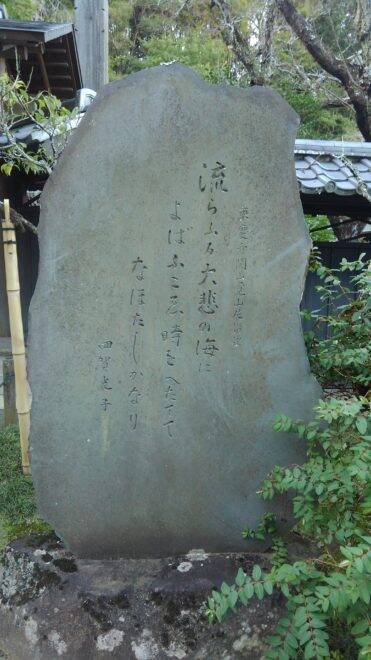 東慶寺開山覚山尼
流らふる大悲の海に
よばふこゑ時をへたてて
なほたしかなり
四賀光子